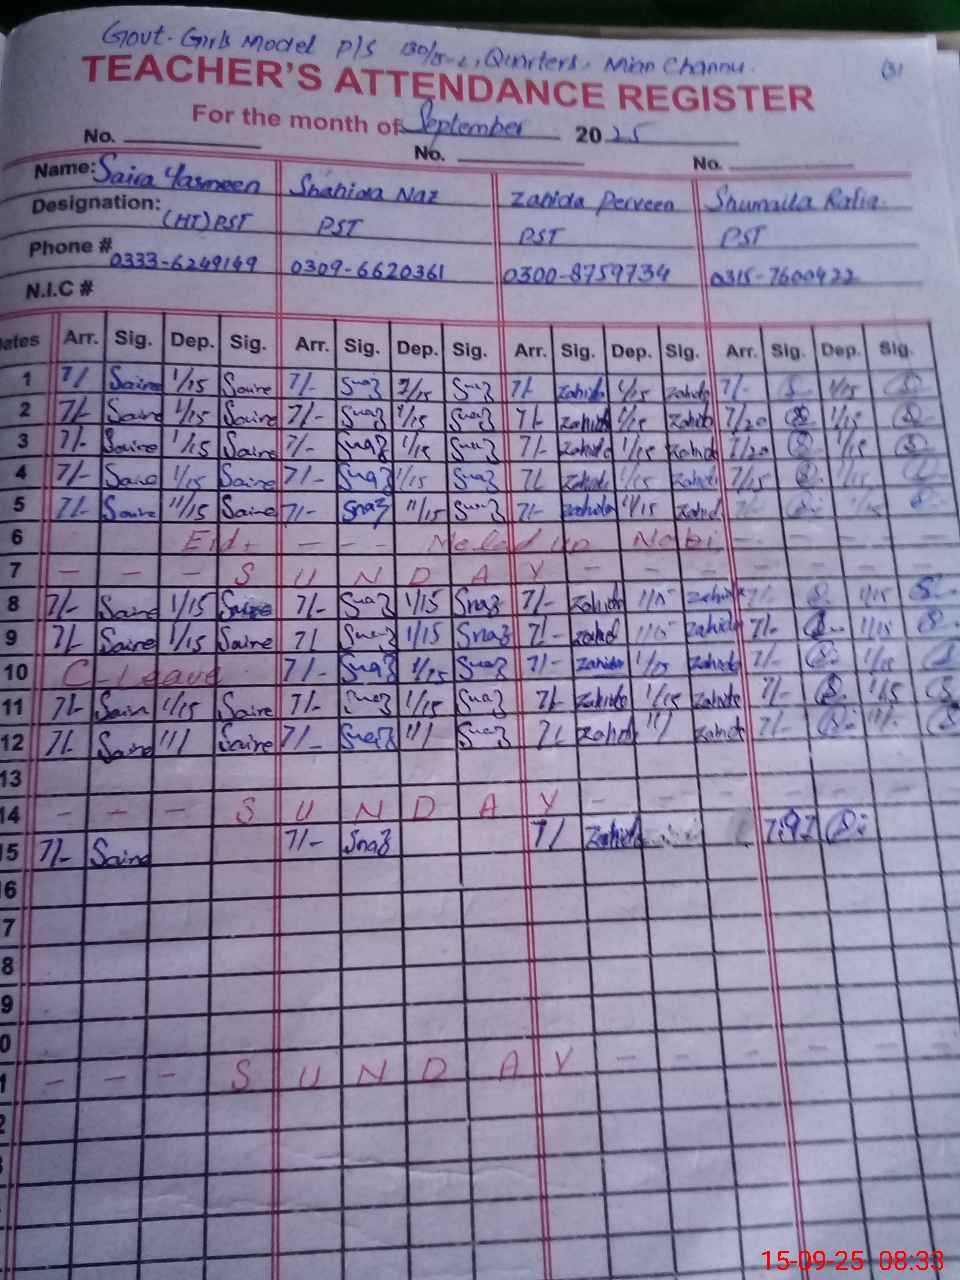 Govt. Girls Model P/S 130/15-L, Quarters, Mian Channu.
TEACHER'S ATTENDANCE REGISTER
For the month of September 2025
No. No. No.
Name: Saira Yasmeen Shahida Naz Zahida Perveen Shumaila
Designation: (HT) PST PST PST PST
Phone # 0333-6249149 0309-6620361 0300-8759734 0315-7600422
N.I.C #
ates Arr. Sig. Dep. Sig. Arr. Sig. Dep. Sig. Arr. Sig. Dep. Sig. Arr. Sig. Dep. Sig.
1 7/- Saire 1/15 Saire 7/- Snaz 1/15 Snaz 7/- Zahida 1/15 Zahida 7/- 1/15
2 7/- Saire 1/15 Saire 7/- Snaz 1/15 Snaz 7/- Zahida 1/15 Zahida 7/20 1/15
3 7/- Saire 1/15 Saire 7/- Snaz 1/15 Snaz 7/- Zahida 1/15 Zahida 7/20 1/15
4 7/- Saire 1/15 Saire 7/- Snaz 1/15 Snaz 7/- Zahida 1/15 Zahida 7/15
5 7/- Saire 11/15 Saire 7/- Snaz 11/15 Snaz 7/- Zahida 11/15 Zahid
6 Eid - - - Melad un Nabi - - - -
7 - - - S U N D A Y - - - - - -
8 7/- Saire 1/15 Saire 7/- Snaz 1/15 Snaz 7/- Zahida 1/15 Zahida
9 7/- Saire 1/15 Saire 7/- Snaz 1/15 Snaz 7/- Zahid 1/15 Zahida 7/- 1/15
10 C-Leave 7/- Snaz 1/15 Snaz 7/- Zahida 1/15 Zahida 7/- 1/15
11 7/- Saire 1/15 Saire 7/- Snaz 1/15 Snaz 7/- Zahida 1/15 Zahida 7/- 1/15
12 7/- Saire 11/ Saire 7/- Snaz 11/ Snaz 7/- Zahida 11/ Zahida 7/- 11/-
13
14 - - - S U N D A Y - - - - - -
5 7/- Saire 7/- Snaz 7/- Zahida
6
7
8
9
0
1 - - - S U N D A Y - - - - - -
2
15-09-25 08:33